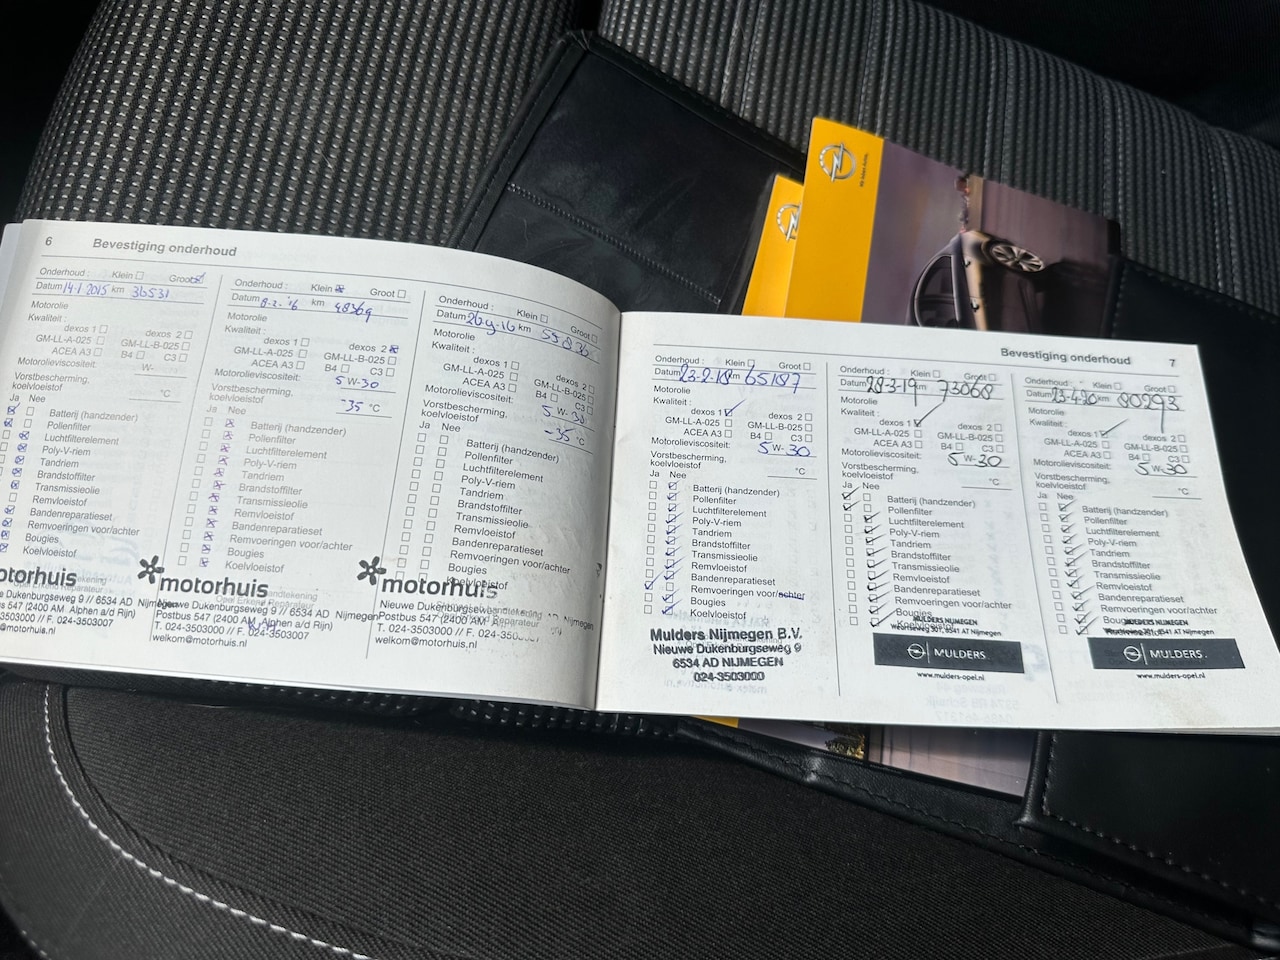 6 Bevestiging onderhoud
Onderhoud : Klein Groot
Datum 14-1-2015 km 36531
Motorolie
Kwaliteit :
dexos 1 dexos 2
GM-LL-A-025 GM-LL-B-025
ACEA A3 B4 C3
Motorolieviscositeit: W-
Vorstbescherming,
koelvloeistof °C
Ja Nee
Batterij (handzender)
Pollenfilter
Luchtfilterelement
Poly-V-riem
Tandriem
Brandstoffilter
Transmissieolie
Remvloeistof
Bandenreparatieset
Remvoeringen voor/achter
Bougies
Koelvloeistof
motorhuis
Dukenburgseweg 9 // 6534 AD Nijmegen
547 (2400 AM Alphen a/d Rijn)
3503000 // F. 024-3503007
@motorhuis.nl
Onderhoud : Klein Groot
Datum 8-2-'16 km 48369
Motorolie
Kwaliteit :
dexos 1 dexos 2
GM-LL-A-025 GM-LL-B-025
ACEA A3 B4 C3
Motorolieviscositeit: 5 W-30
Vorstbescherming,
koelvloeistof -35 °C
Ja Nee
Batterij (handzender)
Pollenfilter
Luchtfilterelement
Poly-V-riem
Tandriem
Brandstoffilter
Transmissieolie
Remvloeistof
Bandenreparatieset
Remvoeringen voor/achter
Bougies
Koelvloeistof
motorhuis
Nieuwe Dukenburgseweg 9 // 6534 AD Nijmegen
Postbus 547 (2400 AM Alphen a/d Rijn)
T. 024-3503000 // F. 024-3503007
welkom@motorhuis.nl
Onderhoud : Klein Groot
Datum km
Motorolie
Kwaliteit :
dexos 1 dexos 2
GM-LL-A-025 GM-LL-B-025
ACEA A3 B4 C3
Motorolieviscositeit: 5 W-30
Vorstbescherming,
koelvloeistof -35 °C
Ja Nee
Batterij (handzender)
Pollenfilter
Luchtfilterelement
Poly-V-riem
Tandriem
Brandstoffilter
Transmissieolie
Remvloeistof
Bandenreparatieset
Remvoeringen voor/achter
Bougies
Koelvloeistof
motorhuis
Nieuwe Dukenburgseweg
Postbus 547 (2400 AM
T. 024-3503000 // F. 024-
welkom@motorhuis.nl
Bevestiging onderhoud 7
Onderhoud : Klein Groot
Datum 23-2-18 km 65187
Motorolie
Kwaliteit :
dexos 1 dexos 2
GM-LL-A-025 GM-LL-B-025
ACEA A3 B4 C3
Motorolieviscositeit: 5 W-30
Vorstbescherming,
koelvloeistof °C
Ja Nee
Batterij (handzender)
Pollenfilter
Luchtfilterelement
Poly-V-riem
Tandriem
Brandstoffilter
Transmissieolie
Remvloeistof
Bandenreparatieset
Remvoeringen voor/achter
Bougies
Koelvloeistof
Mulders Nijmegen B.V.
Nieuwe Dukenburgseweg 9
6534 AD NIJMEGEN
024-3503000
Onderhoud : Klein Groot
Datum 28-3-19 km 73068
Motorolie
Kwaliteit :
dexos 1 dexos 2
GM-LL-A-025 GM-LL-B-025
ACEA A3 B4 C3
Motorolieviscositeit: 5 W-30
Vorstbescherming,
koelvloeistof °C
Ja Nee
Batterij (handzender)
Pollenfilter
Luchtfilterelement
Poly-V-riem
Tandriem
Brandstoffilter
Transmissieolie
Remvloeistof
Bandenreparatieset
Remvoeringen voor/achter
Bougies
Koelvloeistof
MULDERS NIJMEGEN
Weurtseweg 307, 6541 AT Nijmegen
MULDERS
www.mulders-opel.nl
Onderhoud : Klein Groot
Datum 23-4-20 km 80293
Motorolie
Kwaliteit :
dexos 1 dexos 2
GM-LL-A-025 GM-LL-B-025
ACEA A3 B4 C3
Motorolieviscositeit: 5 W-30
Vorstbescherming,
koelvloeistof °C
Ja Nee
Batterij (handzender)
Pollenfilter
Luchtfilterelement
Poly-V-riem
Tandriem
Brandstoffilter
Transmissieolie
Remvloeistof
Bandenreparatieset
Remvoeringen voor/achter
Bougies
MULDERS NIJMEGEN
Weurtseweg 307, 6541 AT Nijmegen
MULDERS
www.mulders-opel.nl